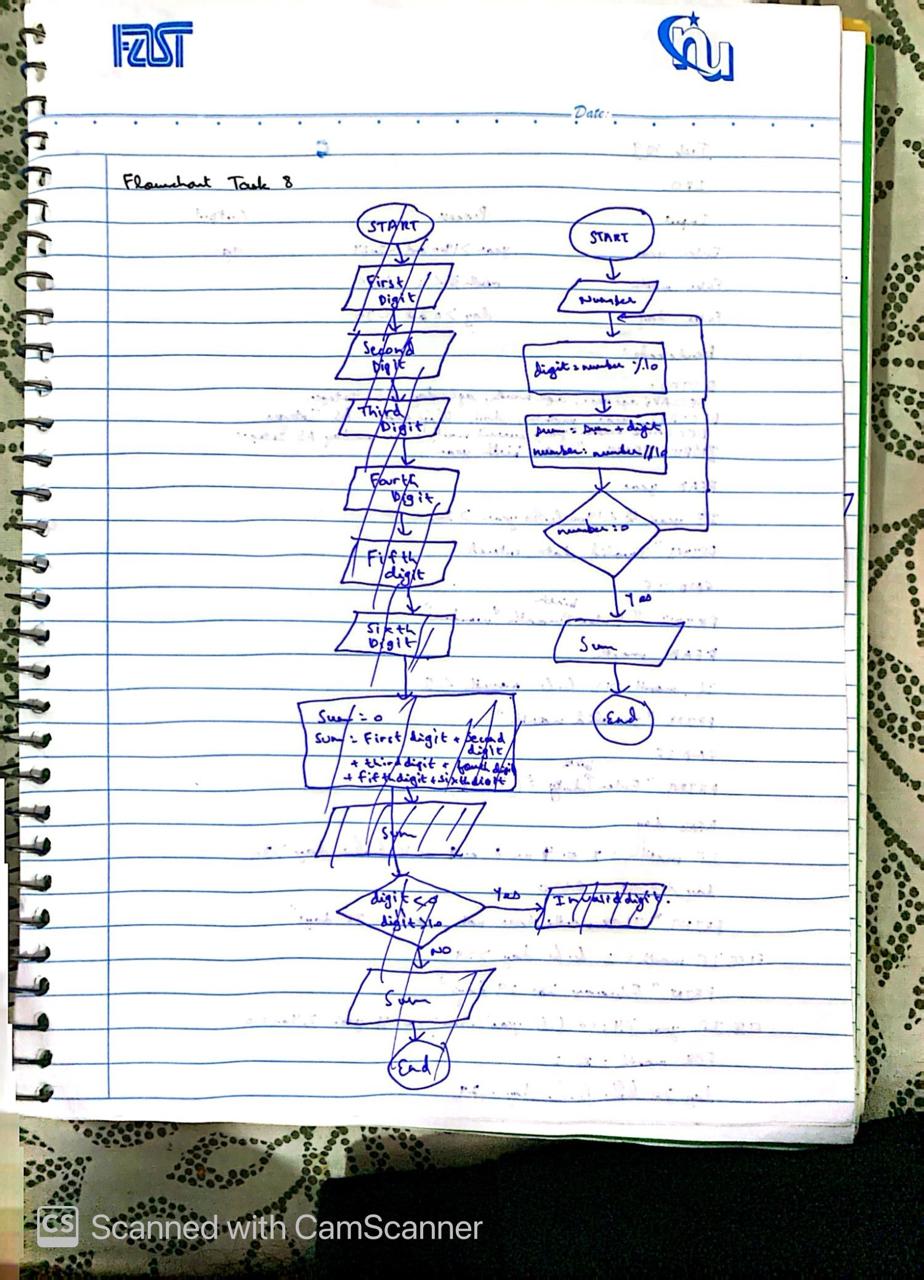 FAST
nu
Date:
Flowchart Task 8
START
First
Digit
Second
Digit
Third
Digit
Fourth
Digit
Fifth
digit
Sixth
Digit
Sum = 0
Sum = First digit + Second
digit
+ third digit + fourth digit
+ fifth digit + sixth digit
Sum
digit
digit > 10
Yes
Invalid digit.
NO
Sum
End
START
Number
digit = number % 10
sum = sum + digit
number = number // 10
number = 0
Yes
Sum
End
CS Scanned with CamScanner